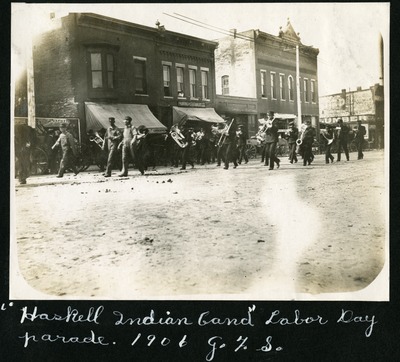 "Haskell Indian Band" Labor Day
parade. 1901 G.F.S.